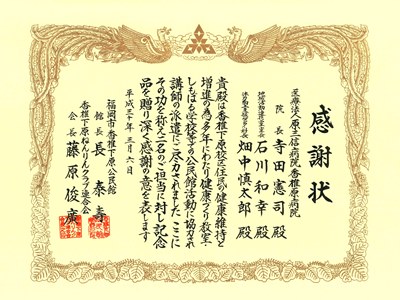 感謝状
医療法人原三信病院香椎原病院
院長 寺田憲司 殿
地域活動連携室室長
石川和幸 殿
畑中慎太郎 殿
貴院は香椎下原校区住民の健康維持と
増進の為多年にわたり健康づくり教室・
しもばる学校等の公民館活動に協力され
講師の派遣にご尽力されました ここに
その功を称え二名のご担当に対し記念
品を贈り深く感謝の意を表します
平成三十年三月六日
福岡市香椎下原公民館
館長 長 泰寿
香椎下原ねんりんクラブ連合会
会長 藤原俊廣